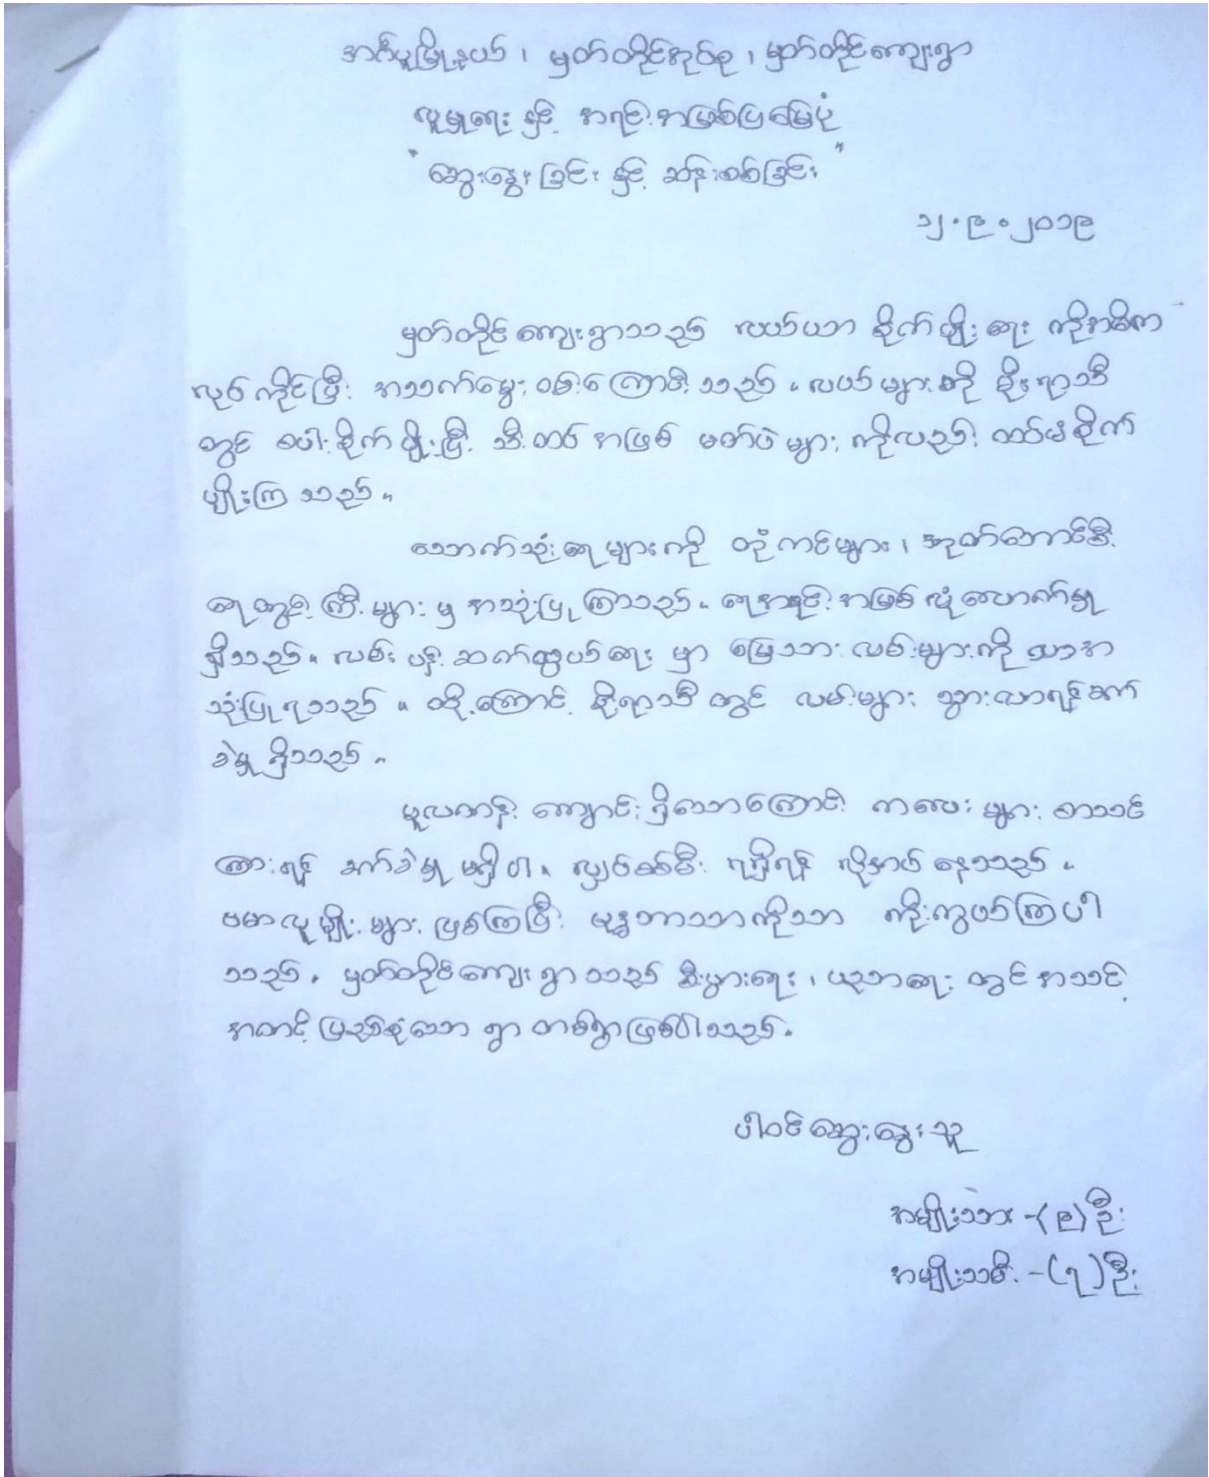 အင်္ဂပူမြို့နယ်၊ မှတ်တိုင်အုပ်စု၊ မှတ်တိုင်ကျေးရွာ
လူမှုရေး နှင့် အရင်းအမြစ်ပြမြေပုံ
"ဆွေးနွေးခြင်း နှင့် ဆန်းစစ်ခြင်း"
၁၂.၉.၂၀၁၉
မှတ်တိုင်ကျေးရွာသည် လယ်ယာ စိုက်ပျိုးရေး ကိုအဓိက
လုပ်ကိုင်ပြီး အသက်မွေး ဝမ်းကြောင်းသည်။ လယ်များကို မိုးရာသီ
တွင် စပါးစိုက်ပျိုးပြီး သီးထပ်အဖြစ် မတ်ပဲများ ကိုလည်း ထပ်မံစိုက်
ပျိုးကြသည်။
သောက်သုံးရေများကို တုံကင်များ၊ အုတ်ဘောင်စီး
ရေတွင်းကြီးများမှ အသုံးပြုကြသည်။ ရေအရင်းအမြစ်လုံလောက်မှု
ရှိသည်။ လမ်းပန်းဆက်သွယ်ရေး မှာ မြေသားလမ်းများကိုသာအ
သုံးပြုရသည်။ ထို့ကြောင့် မိုးရာသီတွင် လမ်းများ သွားလာရန်ခက်
ခဲမှုရှိသည်။
မူလတန်းကျောင်းရှိသောကြောင့် ကလေးများ စာသင်
ကြားရန် ခက်ခဲမှုမရှိပါ။ လျှပ်စစ်မီး ရရှိရန် လိုအပ်နေသည်။
ဗမာလူမျိုးများဖြစ်ကြပြီး ဗုဒ္ဓဘာသာကိုသာ ကိုးကွယ်ကြပါ
သည်။ မှတ်တိုင်ကျေးရွာသည် စီးပွားရေး၊ ပညာရေးတွင် အသင့်
အတင့်ပြည့်စုံသော ရွာတစ်ရွာဖြစ်ပါသည်။
ပါဝင်ဆွေးနွေးသူ
အမျိုးသား -(၉)ဦး
အမျိုးသမီး -(၇)ဦး